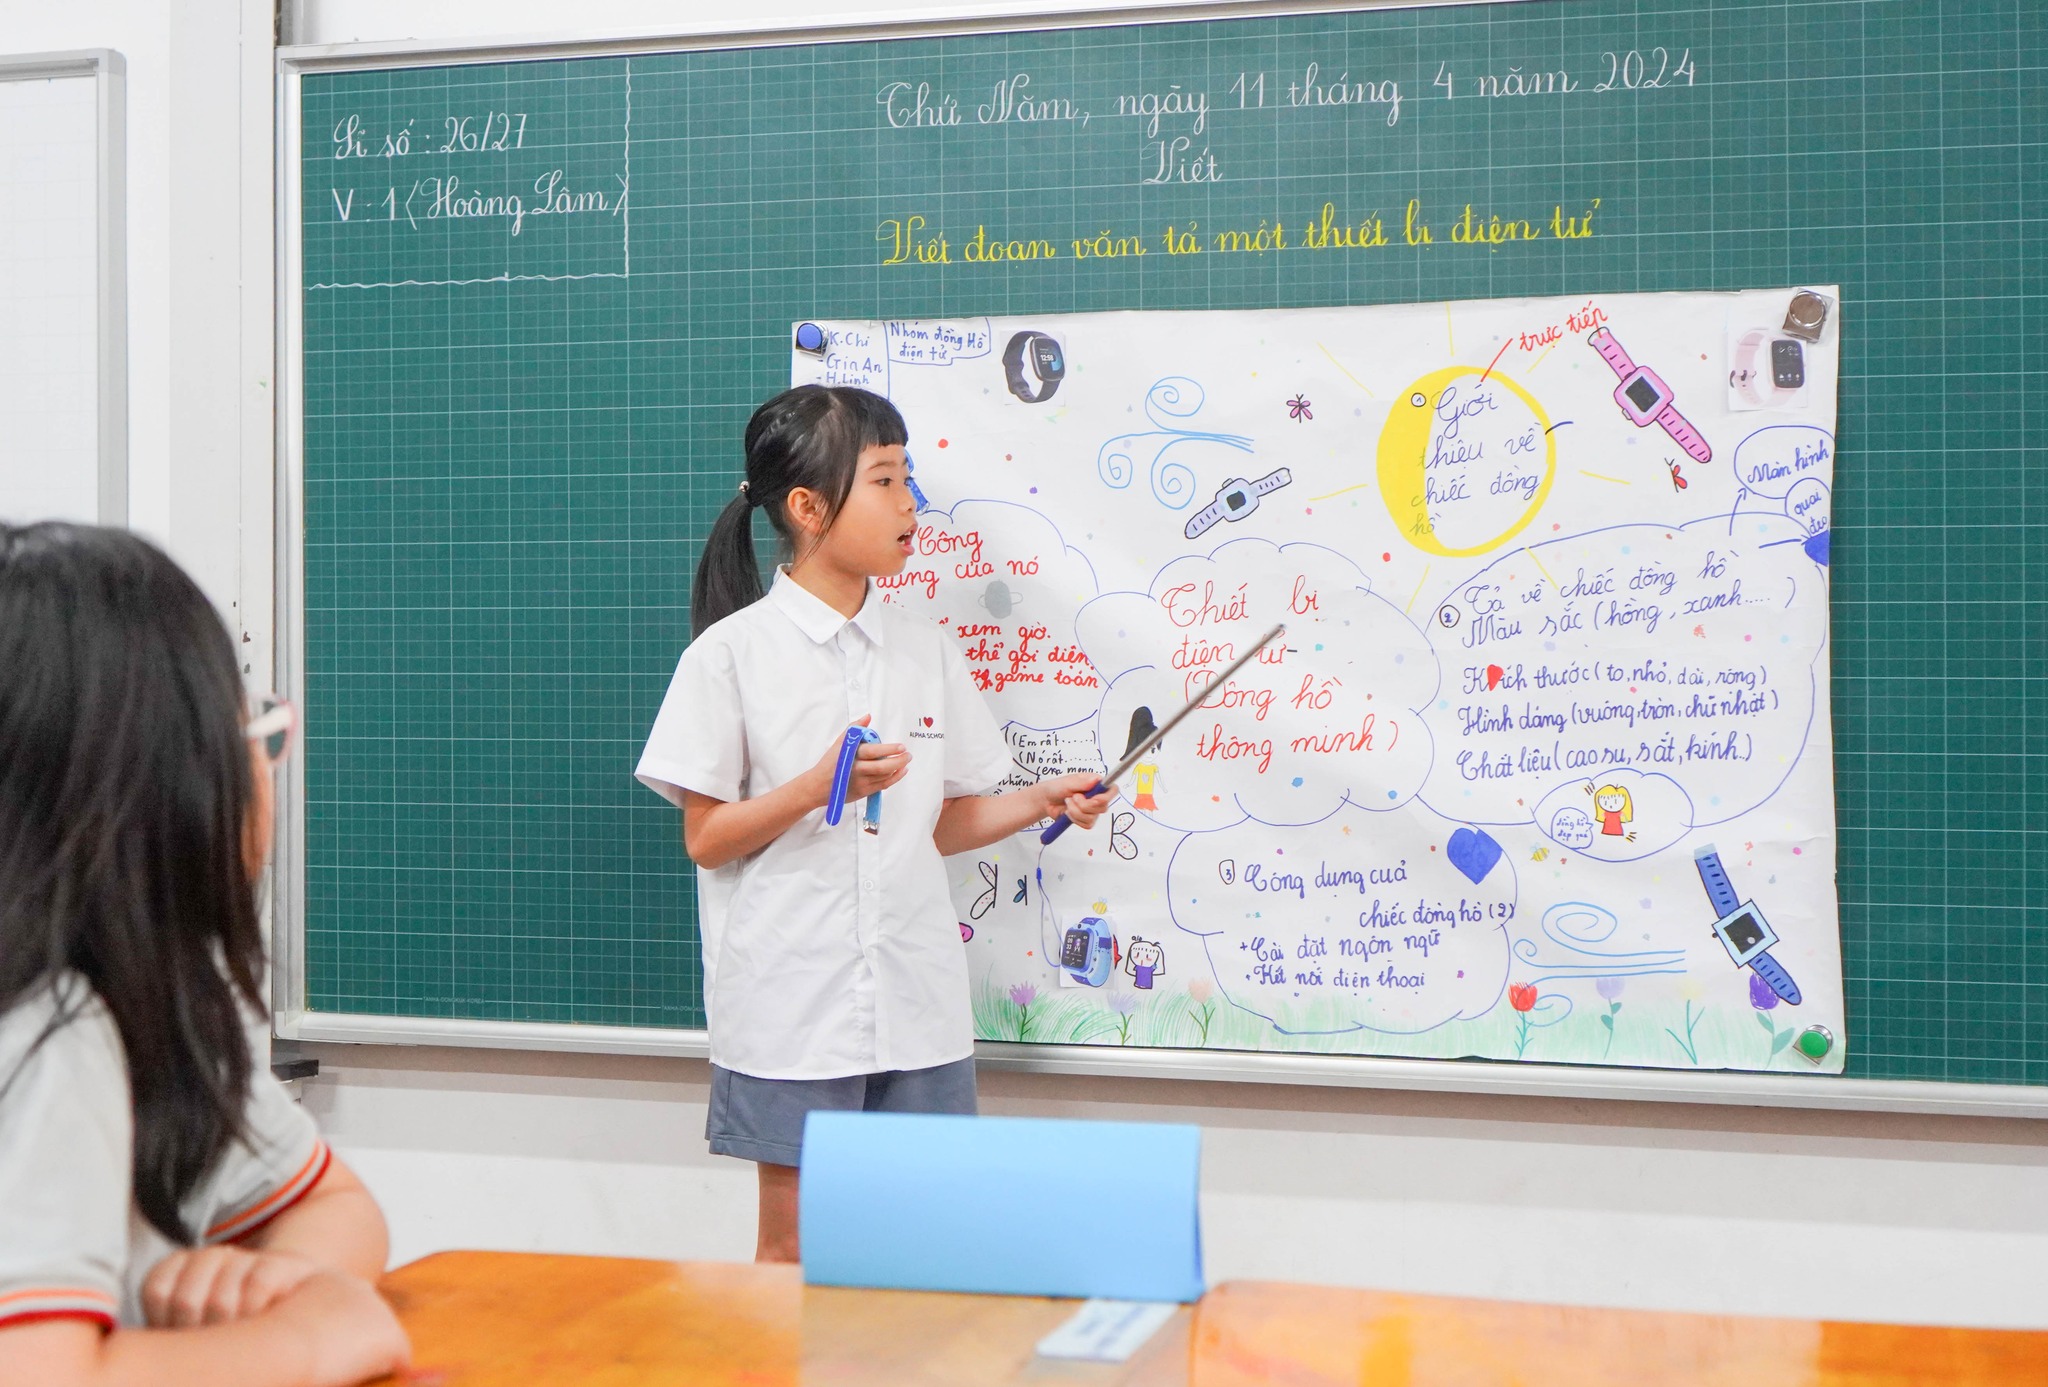 Sĩ số : 26/27
V : 1 (Hoàng Lâm)
Thứ Năm, ngày 11 tháng 4 năm 2024
Viết
Viết đoạn văn tả một thiết bị điện tử
K. Chi
- Gin An
- H. Linh
Nhóm đồng Hồ
điện tử
trực tiếp
① Giới
thiệu về
chiếc đồng
hồ
Màn hình
quai
đeo
Công
dụng của nó
xem giờ.
thể gọi điện.
game toán
(Em rất ......)
(Nó rất ......)
Thiết bị
điện tử
(Đồng hồ
thông minh)
② Tả về chiếc đồng hồ
Màu sắc (hồng, xanh..... )
Kích thước (to, nhỏ, dài, rộng)
Hình dáng (vuông, tròn, chữ nhật)
Chất liệu (cao su, sắt, kính..)
đồng hồ
đẹp quá
③ Công dụng cuả
chiếc đồng hồ (2)
+ Cài đặt ngôn ngữ
+ Kết nối điện thoại
I ❤
ALPHA SCHOO